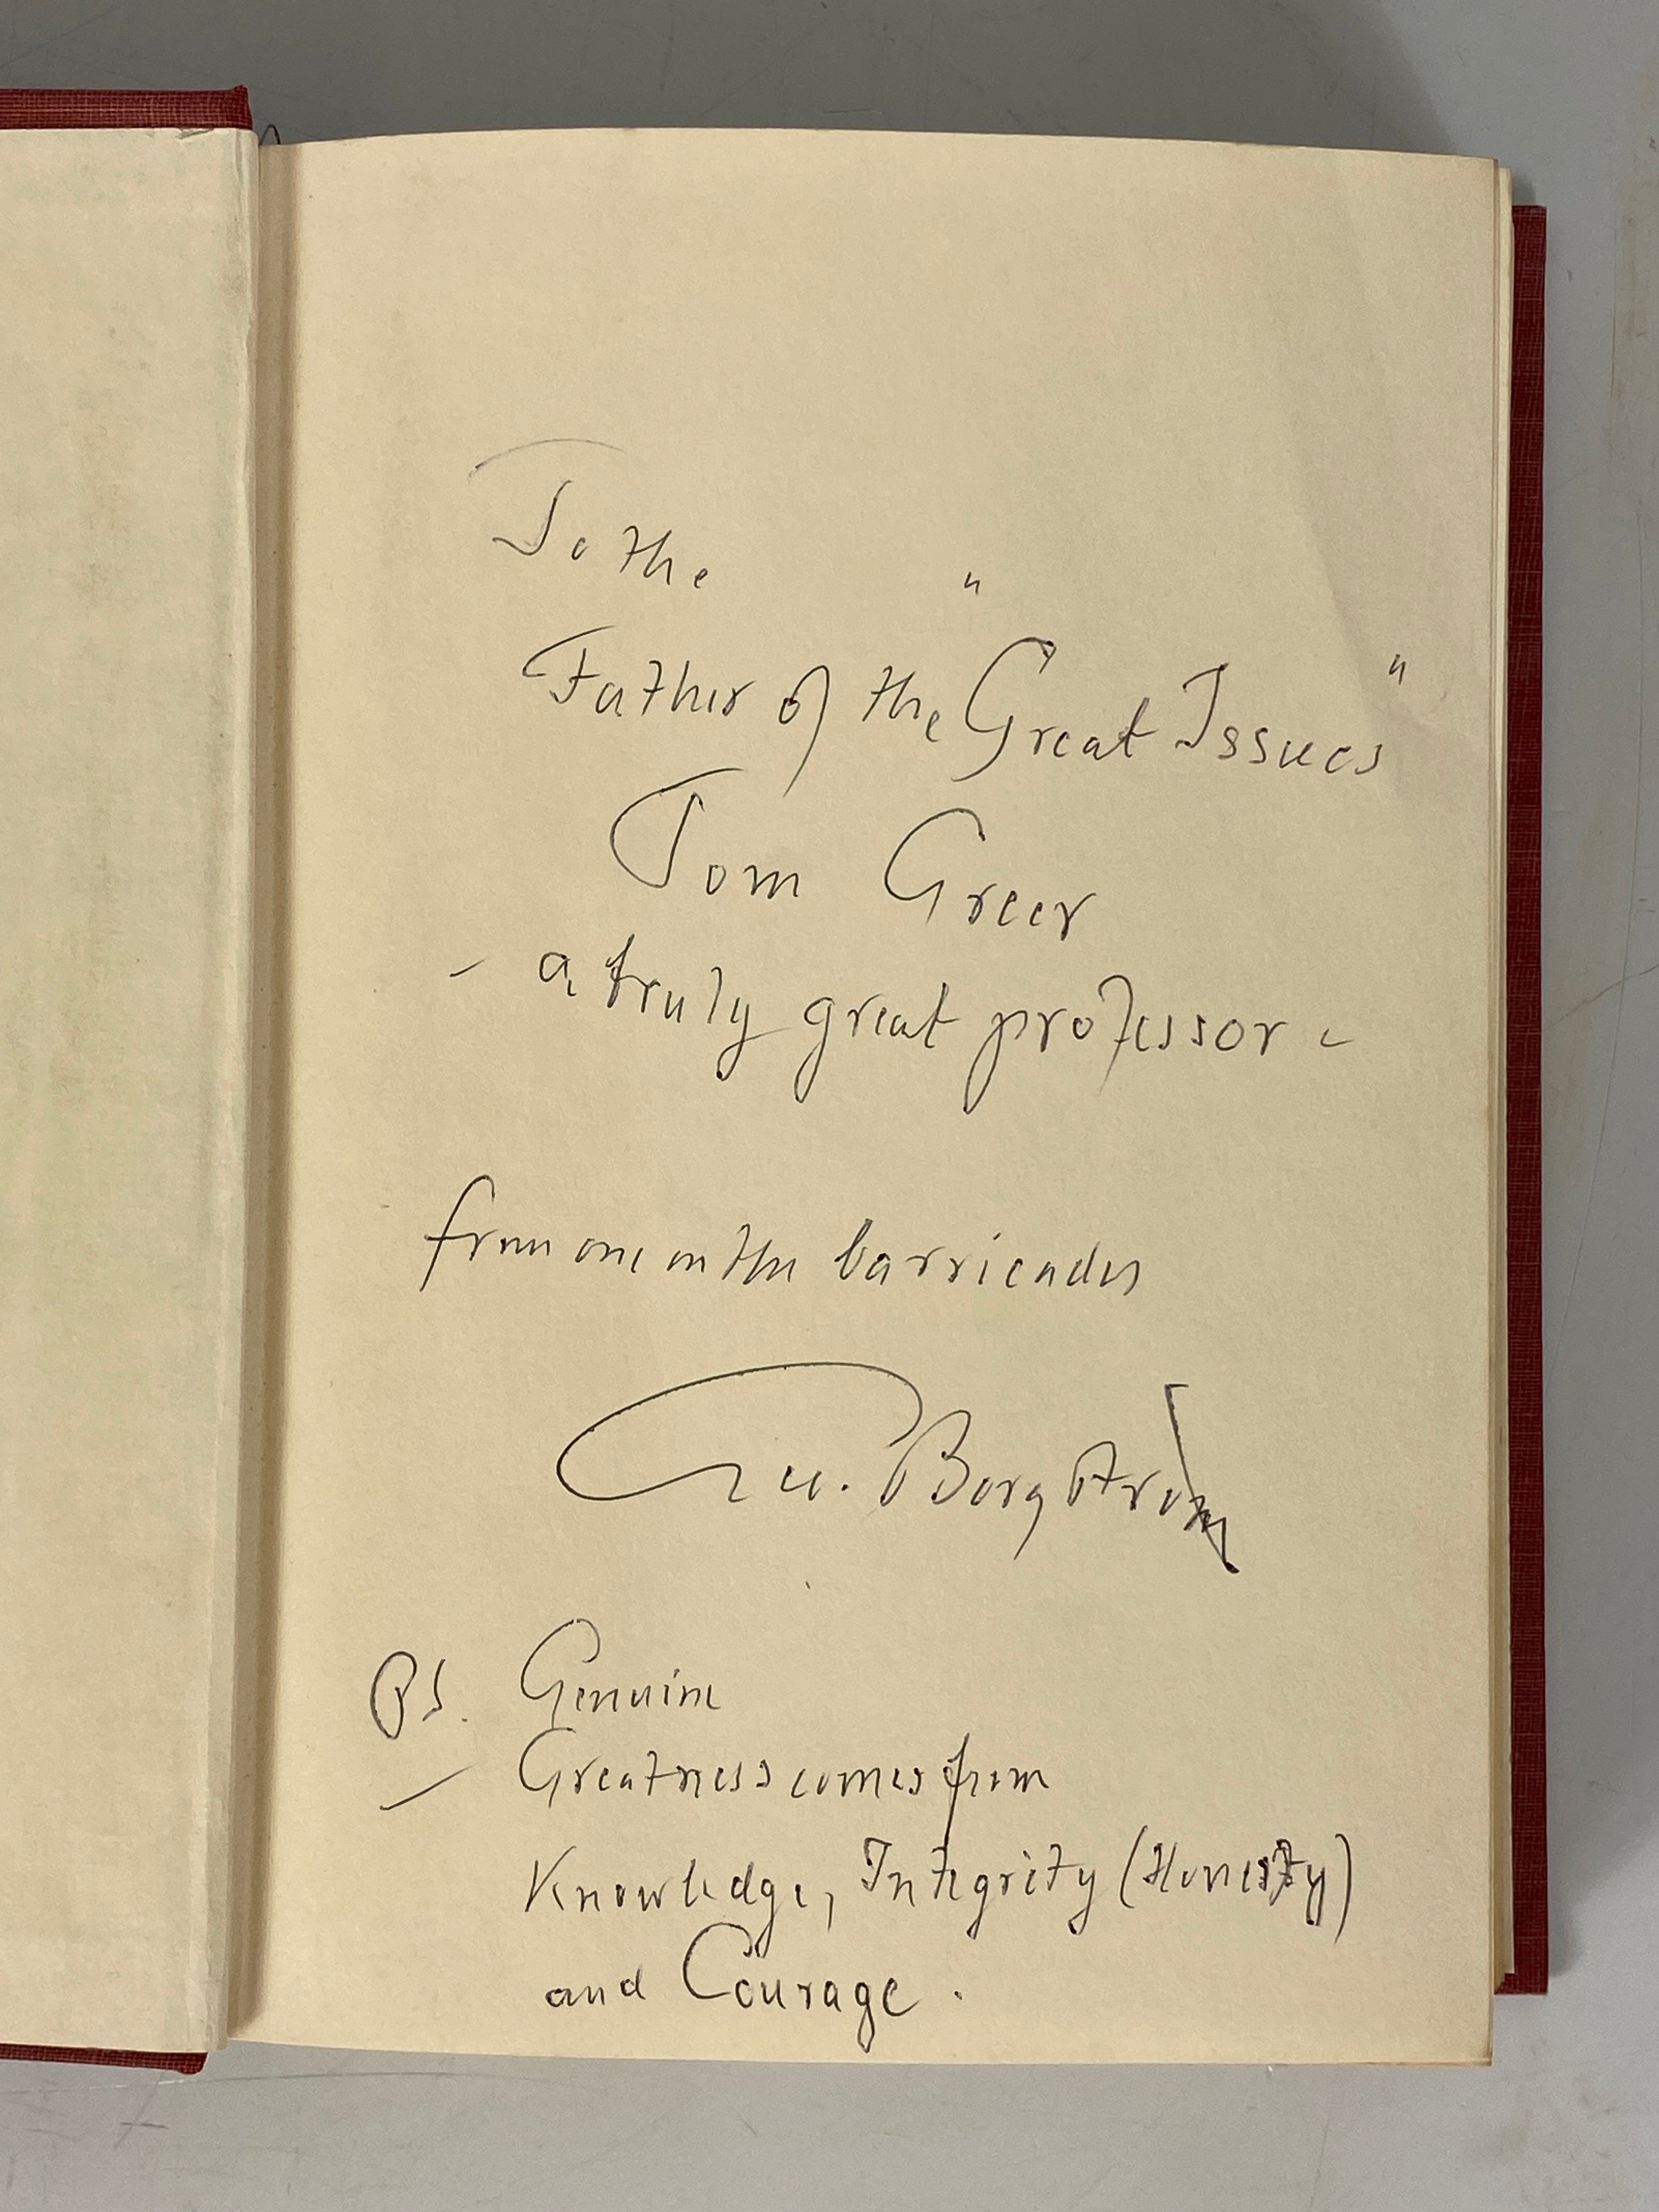 To the
Father of the "Great Issues"
Tom Greer
- a truly great professor -
from one on the barricades
Borgström
PS. Genuine
Greatness comes from
Knowledge, Integrity (Honesty)
and Courage.